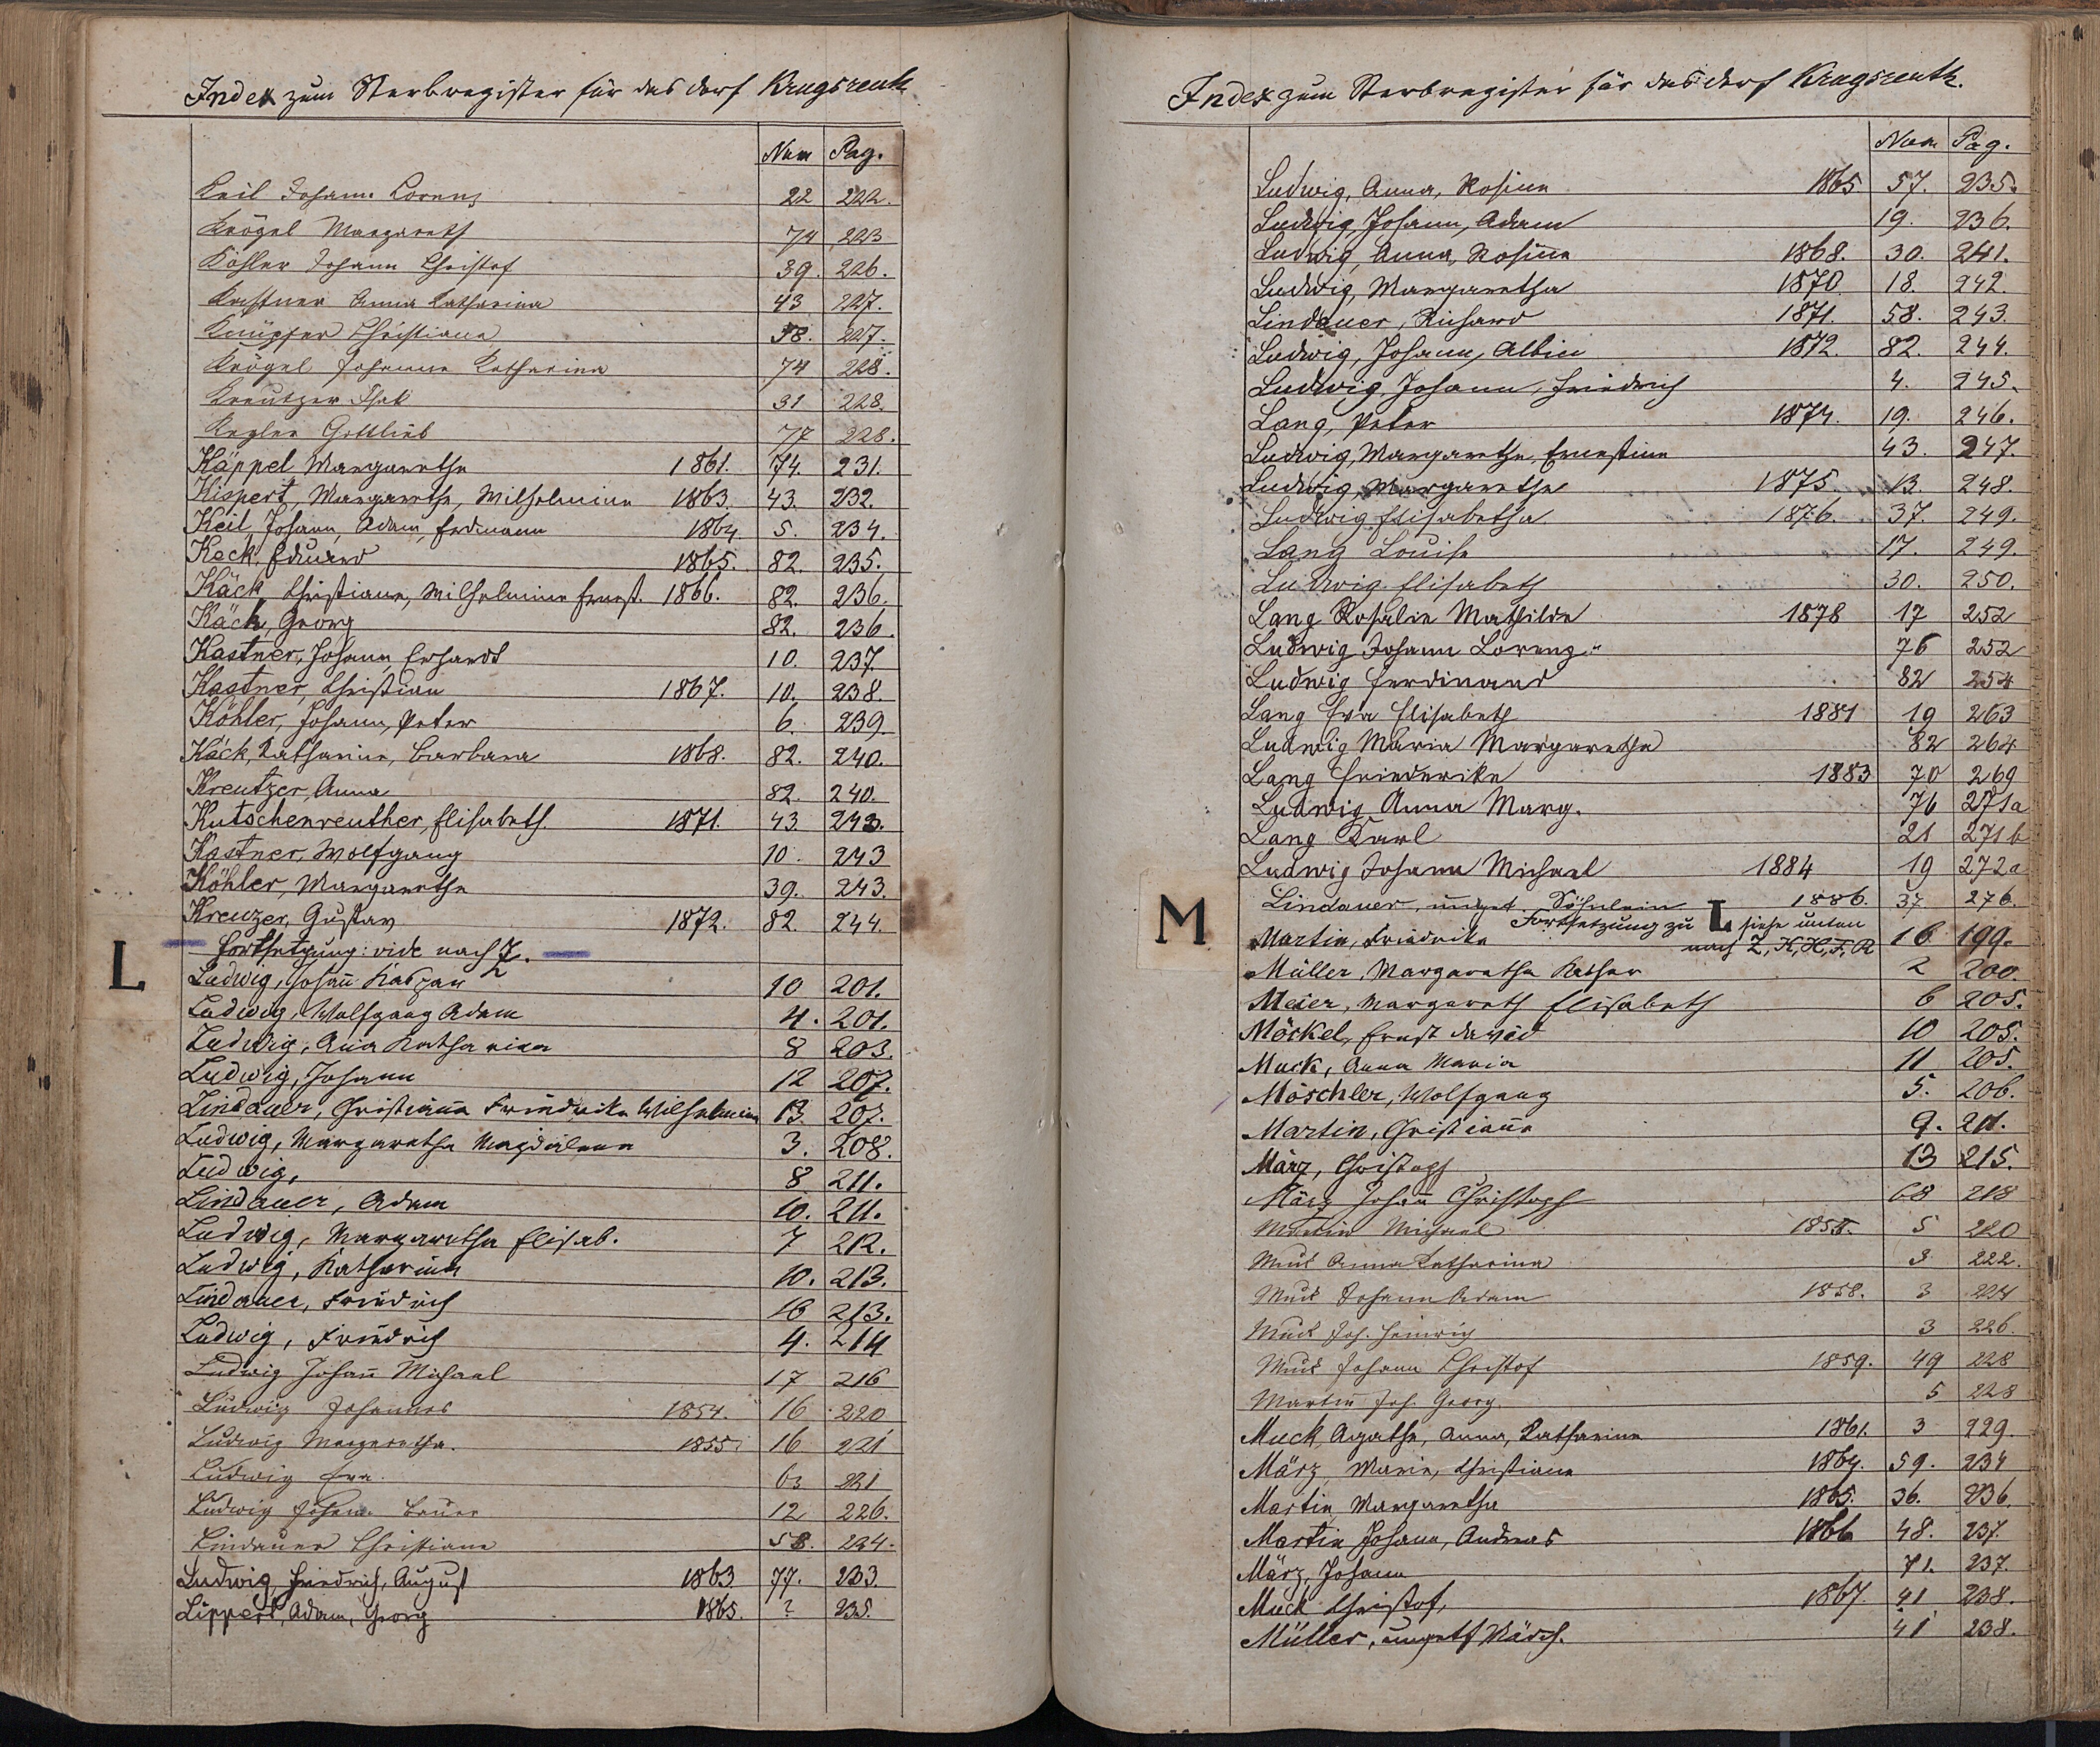 Index zum Sterbregister für das Dorf Krugsreuth
Num Pag.
Keil Johann Lorenz 22 222.
Krögel Margareth 74 223
Köhler Johann Christof 39. 226.
Kastner Anna Katharina 43 227.
Knüpfer Christiana 58. 227.
Krögel Johanna Katharina 74 228.
Kreutzer 31 228.
Kegler Gottlieb 77 228.
Käppel Margaretha 1861. 74. 231.
Kispert, Margaretha, Wilhelmine 1863. 43. 232.
Keil, Johann, Adam, Erdmann 1864. 5. 234.
Keck, Eduard 1865. 82. 235.
Käck, Christiane, Wilhelmine Ernest. 1866. 82. 236.
Käck, Georg 82. 236.
Kastner, Johann Erhardt 10. 237.
Kastner, Christian 1867. 10. 238.
Köhler, Johann, Peter 6. 239.
Käck, Katharine, Barbara 1868. 82. 240.
Kreutzer, Anna 82. 240.
Kutschenreuther, Elisabeth. 1871. 43 243.
Kastner, Wolfgang 10. 243
Köhler, Margaretha 39. 243.
Kreuzer, Gustav 1872. 82. 244.
Fortsetzung: vide nach Z.
L
Ludwig, Johañ Kaspar 10 201.
Ludwig, Wolfgang Adam 4. 201.
Ludwig, Aña Katharina 8 203.
Ludwig, Johann 12 207.
Lindauer, Christiana Friedrike Wilhelmina 13. 207.
Ludwig, Margaretha Magdalena 3. 208.
Ludwig, 8 211.
Lindauer, Adam 10. 211.
Ludwig, Margaretha Elisab. 7 212.
Ludwig, Katharina 10. 213.
Lindauer, Friedrich 16 213.
Ludwig, Friedrich 4. 214
Ludwig Johañ Michael 17 216
Ludwig Johannes 1854. 16 220
Ludwig Margaretha. 1855 16 221
Ludwig Eva. 63 221
Ludwig Johann 12 226.
Lindauer Christiana 58. 224.
Ludwig, Friedrich, August 1863. 77. 233.
Lippert, Adam, Georg 1865. ? 235.
Index zum Sterbregister für das Dorf Krugsreuth.
Num Pag.
Ludwig, Anna, Rosina 1865 57. 235.
Ludwig, Johann, Adam 19. 236.
Ludwig, Anna, Rosina 1868. 30. 241.
Ludwig, Margaretha 1870 18. 242.
Lindauer, Richard 1871. 58. 243.
Ludwig, Johann, Albin 1872. 82. 244.
Ludwig, Johann, Friedrich 4. 245.
Lang, Peter 1874. 19. 246.
Ludwig, Margaretha, Ernestine 43. 247.
Ludwig, Margaretha 1875. 13. 248.
Ludwig Elisabetha 1876. 37. 249.
Lang Louise 17. 249.
Ludwig Elisabeth 30. 250.
Lang Rosalie Mathilde 1878 17 252
Ludwig Johann Lorenz 76 252
Ludwig Ferdinand 82 254
Lang Eva Elisabeth 1881 19 263
Ludwig Maria Margaretha 82 264
Lang Friederike 1883 70 269
Ludwig Anna Marg. 76 271a
Lang Karl 21 271b
Ludwig Johann Michael 1884 19 272a
Lindauer, unget. Söhnlein 1886. 37. 276.
Fortsetzung zu L siehe unten
nach Z, K, H, F, R
M
Martin, Friedrika 16 199.
Müller, Margaretha Kathar 2 200.
Meier, Margareth Elisabeth 6 205.
Möckel, Ernst David 10 205.
Muck, Anna Maria 11 205.
Möschler, Wolfgang 5. 206.
Martin, Christiana 9. 211.
März, Christoph 13 215.
März Johañ Christoph 68 218
Martin Michael 5 220
Muck Anna Katharina 3 222.
Muck Johann Adam 1858. 3 224
Muck Joh. Heinrich 3 226.
Muck Johann Christof 1859. 49 228
Martin Joh. Georg. 5 228
Muck, Agatha, Anna, Katharina 1861. 3 229.
März, Maria, Christiana 1864. 59. 234
Martin, Margaretha 1865. 36. 236.
Martin Johann, Andreas 1866 48. 237.
März, Johann 71. 237.
Muck Christof, 1867. 41 238.
Müller, ungetf Mädch. 41 238.